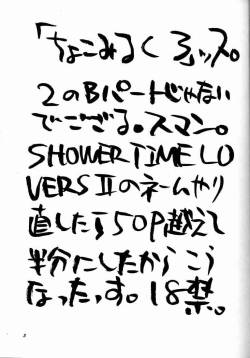 「ちょこみるく ろ」ッス。
2のBパートじゃない
でーござる。スマン。
SHOWER TIME LO
VERS IIのネームやり
直したら50P越えて
半分にしたからこう
なったっす。18禁。
3